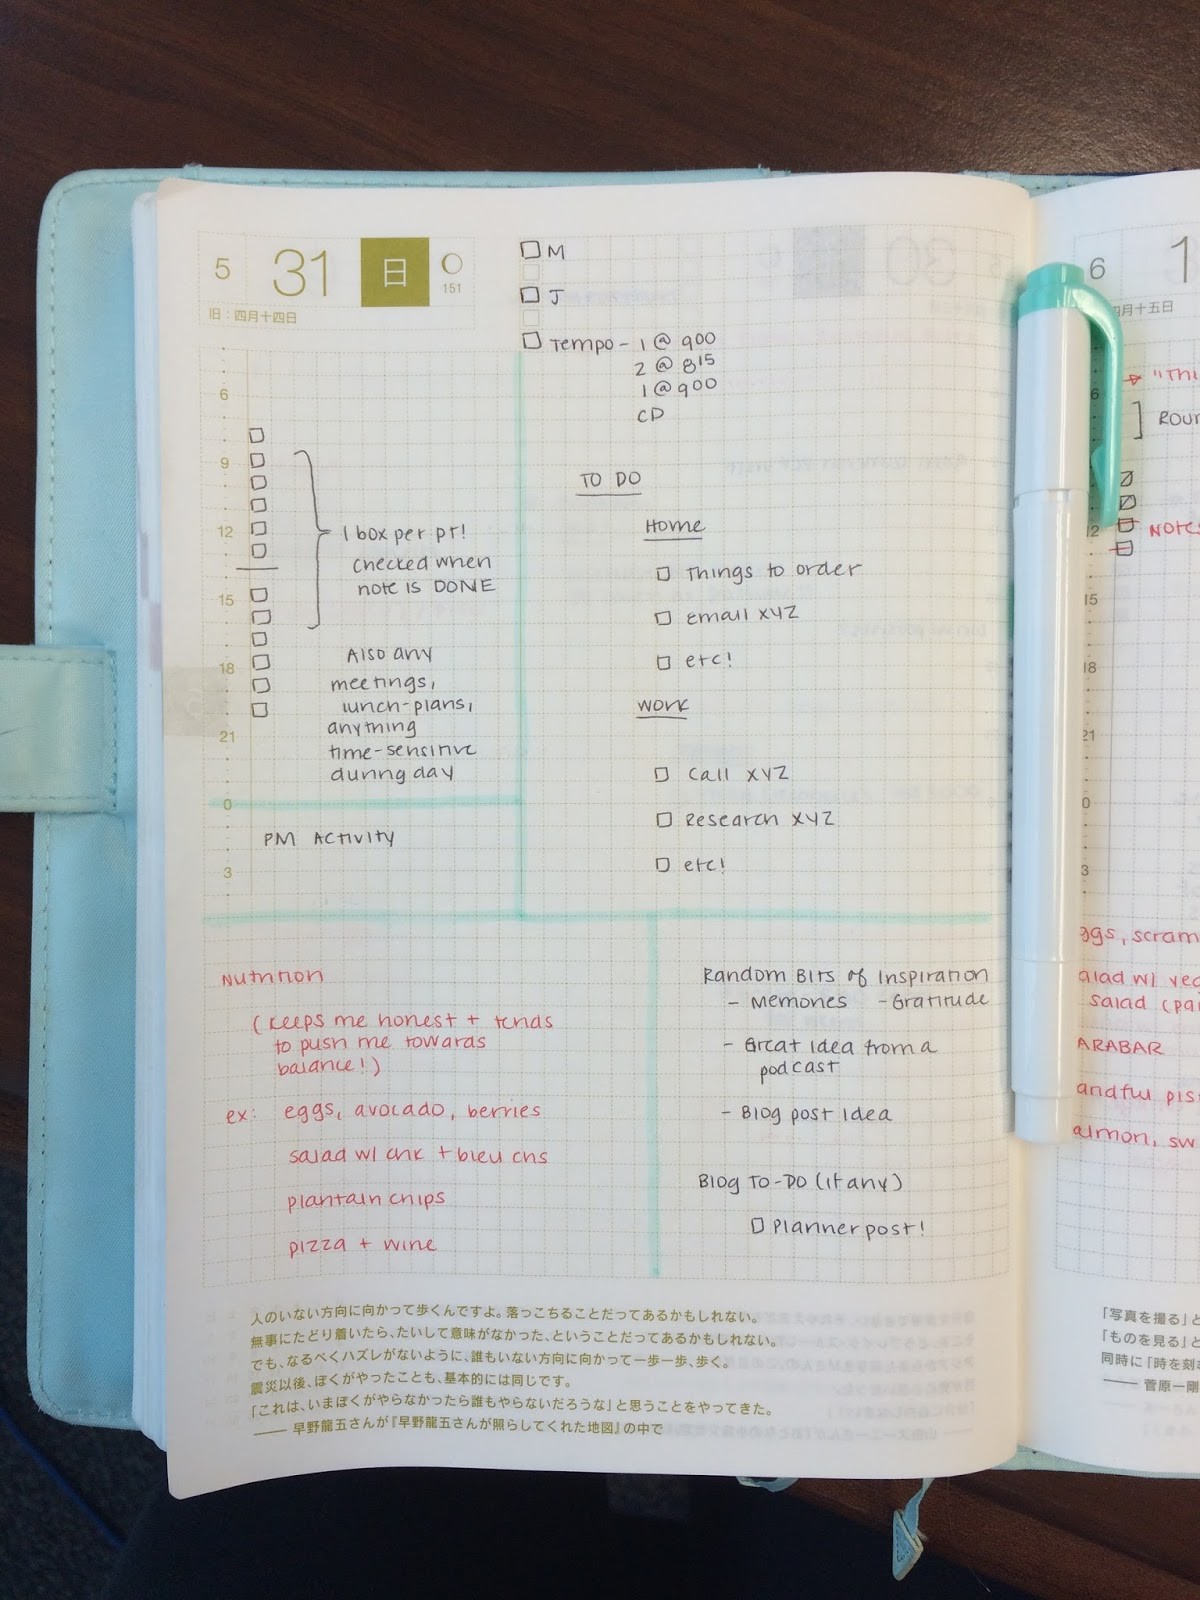 5 31 日
151
旧：四月十四日
M
J
Tempo - 1 @ 9⁰⁰
2 @ 8¹⁵
1 @ 9⁰⁰
CD
6
9
12
15
18
21
0
3
1 box per pt!
checked when
note is DONE
Also any
meetings,
lunch-plans,
anything
time-sensitive
during day
PM Activity
TO DO
Home
Things to order
Email XYZ
etc!
Work
Call XYZ
Research XYZ
etc!
Nutrition
(Keeps me honest + tends
to push me towards
balance!)
ex: eggs, avocado, berries
salad w/ chk + bleu chs
plantain chips
pizza + wine
Random Bits of Inspiration
- Memories - Gratitude
- Great idea from a
podcast
- Blog post idea
Blog To-Do (if any)
Planner post!
人のいない方向に向かって歩くんですよ。落っこちることだってあるかもしれない。
無事にたどり着いたら、たいして意味がなかった、ということだってあるかもしれない。
でも、なるべくハズレがないように、誰もいない方向に向かって一歩一歩、歩く。
震災以後、ぼくがやったことも、基本的には同じです。
「これは、いまぼくがやらなかったら誰もやらないだろうな」と思うことをやってきた。
―― 早野龍五さんが『早野龍五さんが照らしてくれた地図』の中で
6 1
月十五日
"Thi
6
12
Notes
15
18
21
0
3
ggs, scram
alad w/ veg
salad (pa
ARABAR
andful pis
almon, sw
「写真を撮る」と
「ものを見る」と
同時に「時を刻
―― 菅原一剛